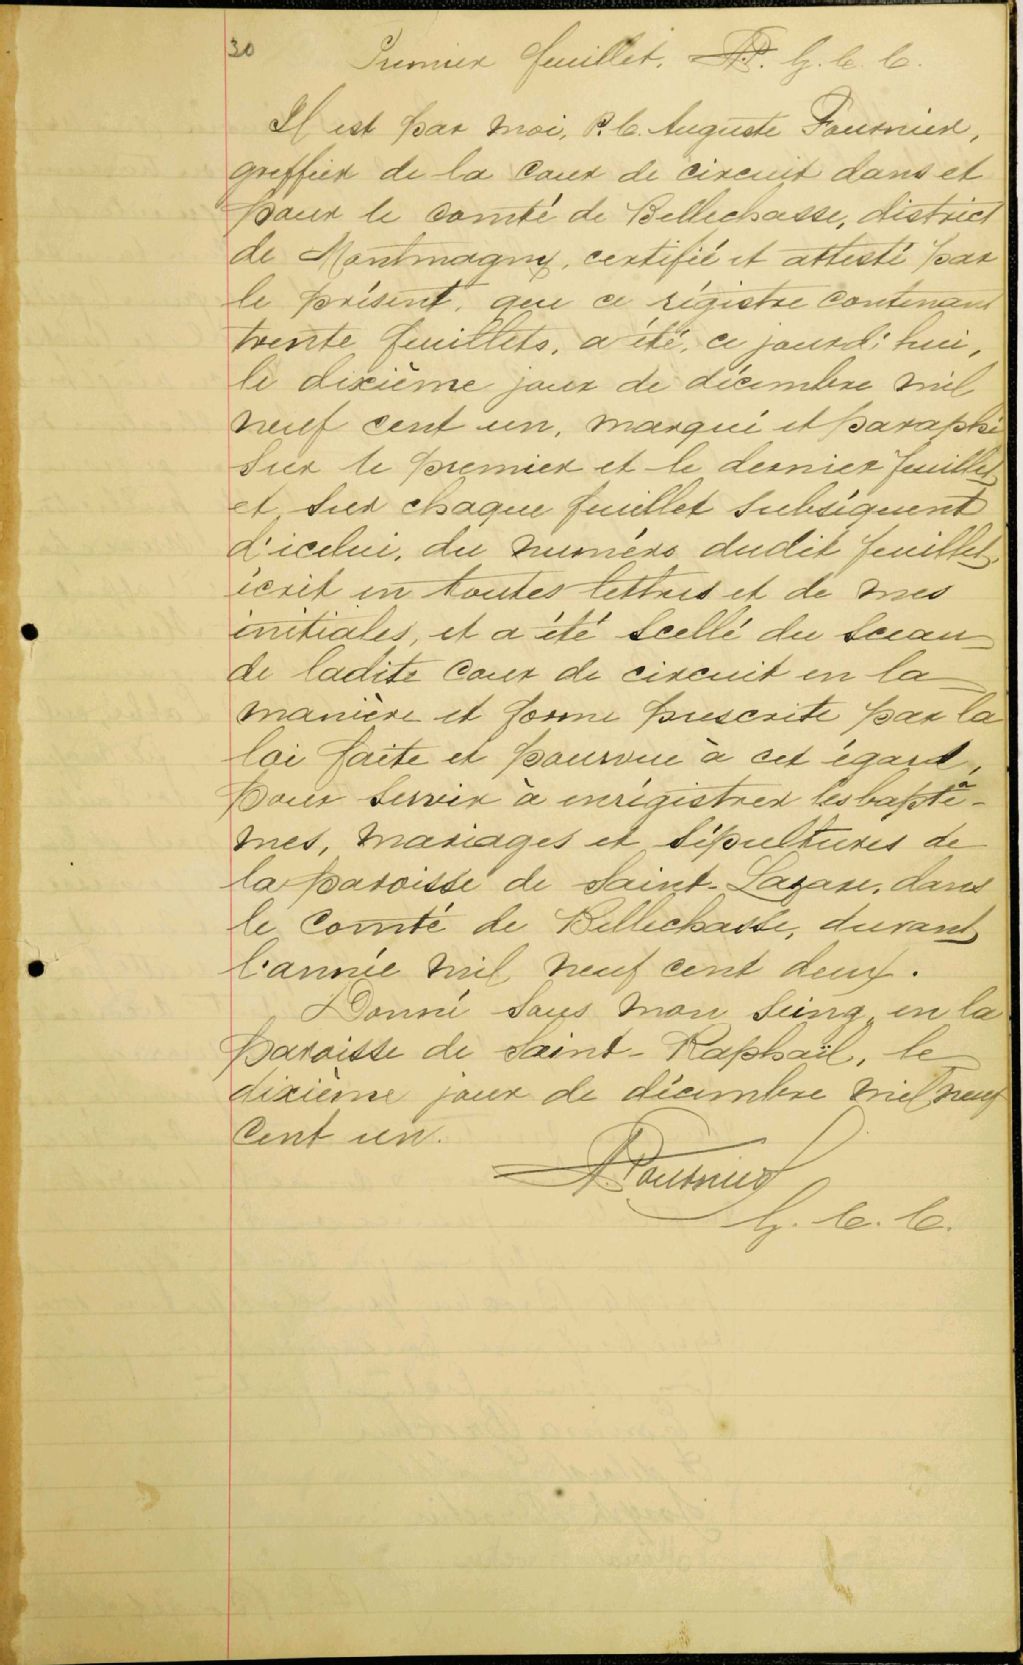 30
Premier feuillet. A.F. G. C. C.
Il est par moi, P. C. Auguste Fournier,
greffier de la cour de circuit dans et
pour le comté de Bellechasse, district
de Montmagny, certifié et attesté par
le présent, que ce régistre contenant
trente feuillets, a été, ce jourd'hui,
le dixième jour de décembre mil
neuf cent un, marqué et paraphé
sur le premier et le dernier feuillet
et sur chaque feuillet subséquent
d'icelui, du numéro dudit feuillet,
écrit en toutes lettres et de mes
initiales, et a été scellé du sceau
de ladite cour de circuit en la
manière et forme prescrite par la
loi faite et pourvue à cet égard,
pour servir à enrégistrer les baptê-
mes, mariages et sépultures de
la paroisse de Saint-Lazare, dans
le comté de Bellechasse, durant
l'année mil neuf cent deux.
Donné sous mon seing, en la
paroisse de Saint-Raphaël, le
dixième jour de décembre mil neuf
cent un.
A. Fournier
G. C. C.